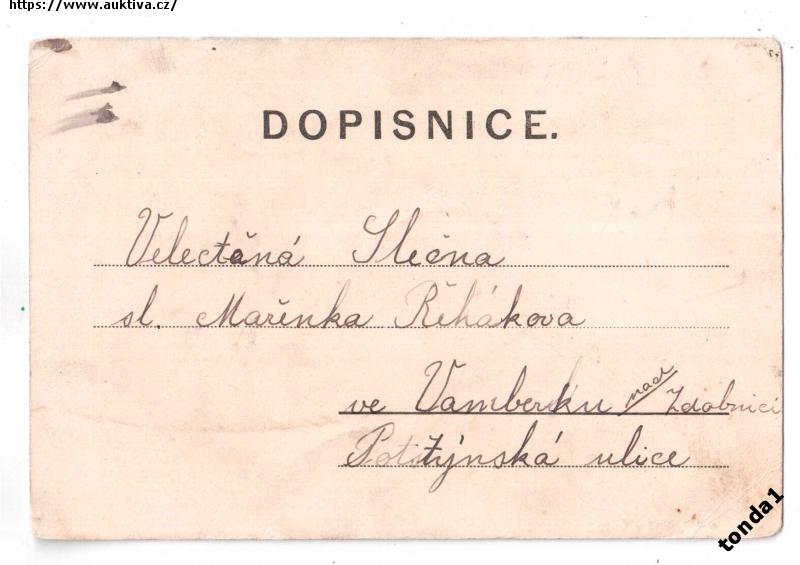 https://www.auktiva.cz/
DOPISNICE.
Velectěná Slečna
sl. Mařenka Řěhákova
ve Vamberku nad Zdobnicí
ulice
tonda1